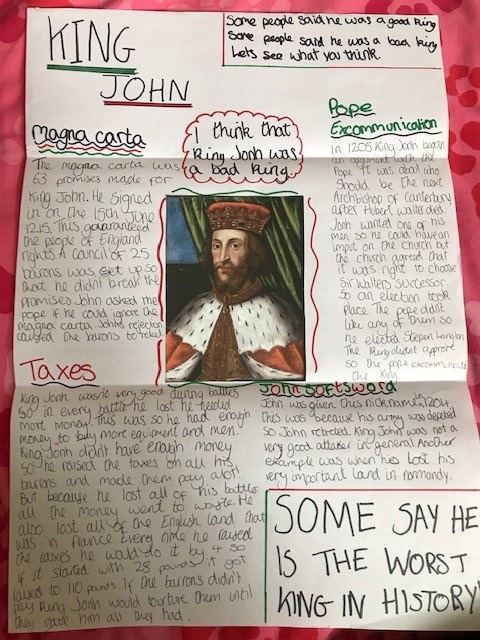 KING
JOHN
Some people said he was a good king
Some people said he was a bad king
Lets see what you think.
Magna carta
The magna carta was
63 promises made for
King John. He signed
in on the 15th June
1215. This guaranteed
the people of England
rights A council of 25
barons was set up so
that he didn't break the
promises John asked the
pope if he could ignore the
magna carta. Johns rejection
caused the barons to rebel.
I think that
king Jonh was
a bad king.
Pope
Excommunication
In 1205 King Jonh began
an argument with the
Pope It was about who
should be the next
Archbishop of Canterbury
after Hubert walter died.
Jonh wanted one of his
men so he could have an
imput on the church but
the church agreed that
it was right to choose
Sir walters successor.
So an election took
Place. The pope didn't
like any of them so
he elected Stepen Langton
The King didnt approve
so the pope excommunicated
the King
Taxes
King Jonh wasn't very good during battles
so in every battle he lost he needed
more money. This was so he had enough
money to buy more equiment and men.
King Jonh didn't have enough money
so he raised the taxes on all his
barrons and made them pay alot!
But because he lost all of his battles
all the money went to waste. He
also lost all of the English land that
was in france Every time he raised
the taxes he would do it by 4 so
if it started with 28 pounds it got
raised to 110 pounds If the barrons didn't
pay King Jonh would tourture them until
they gave him all they had.
John softsword
John was given this nickname in 1204
this was because his army was defeated
so John rebeled. King John was not a
very good attaker in general. Another
example was when he lost his
very important land in normandy.
SOME SAY HE
IS THE WORST
KING IN HISTORY!